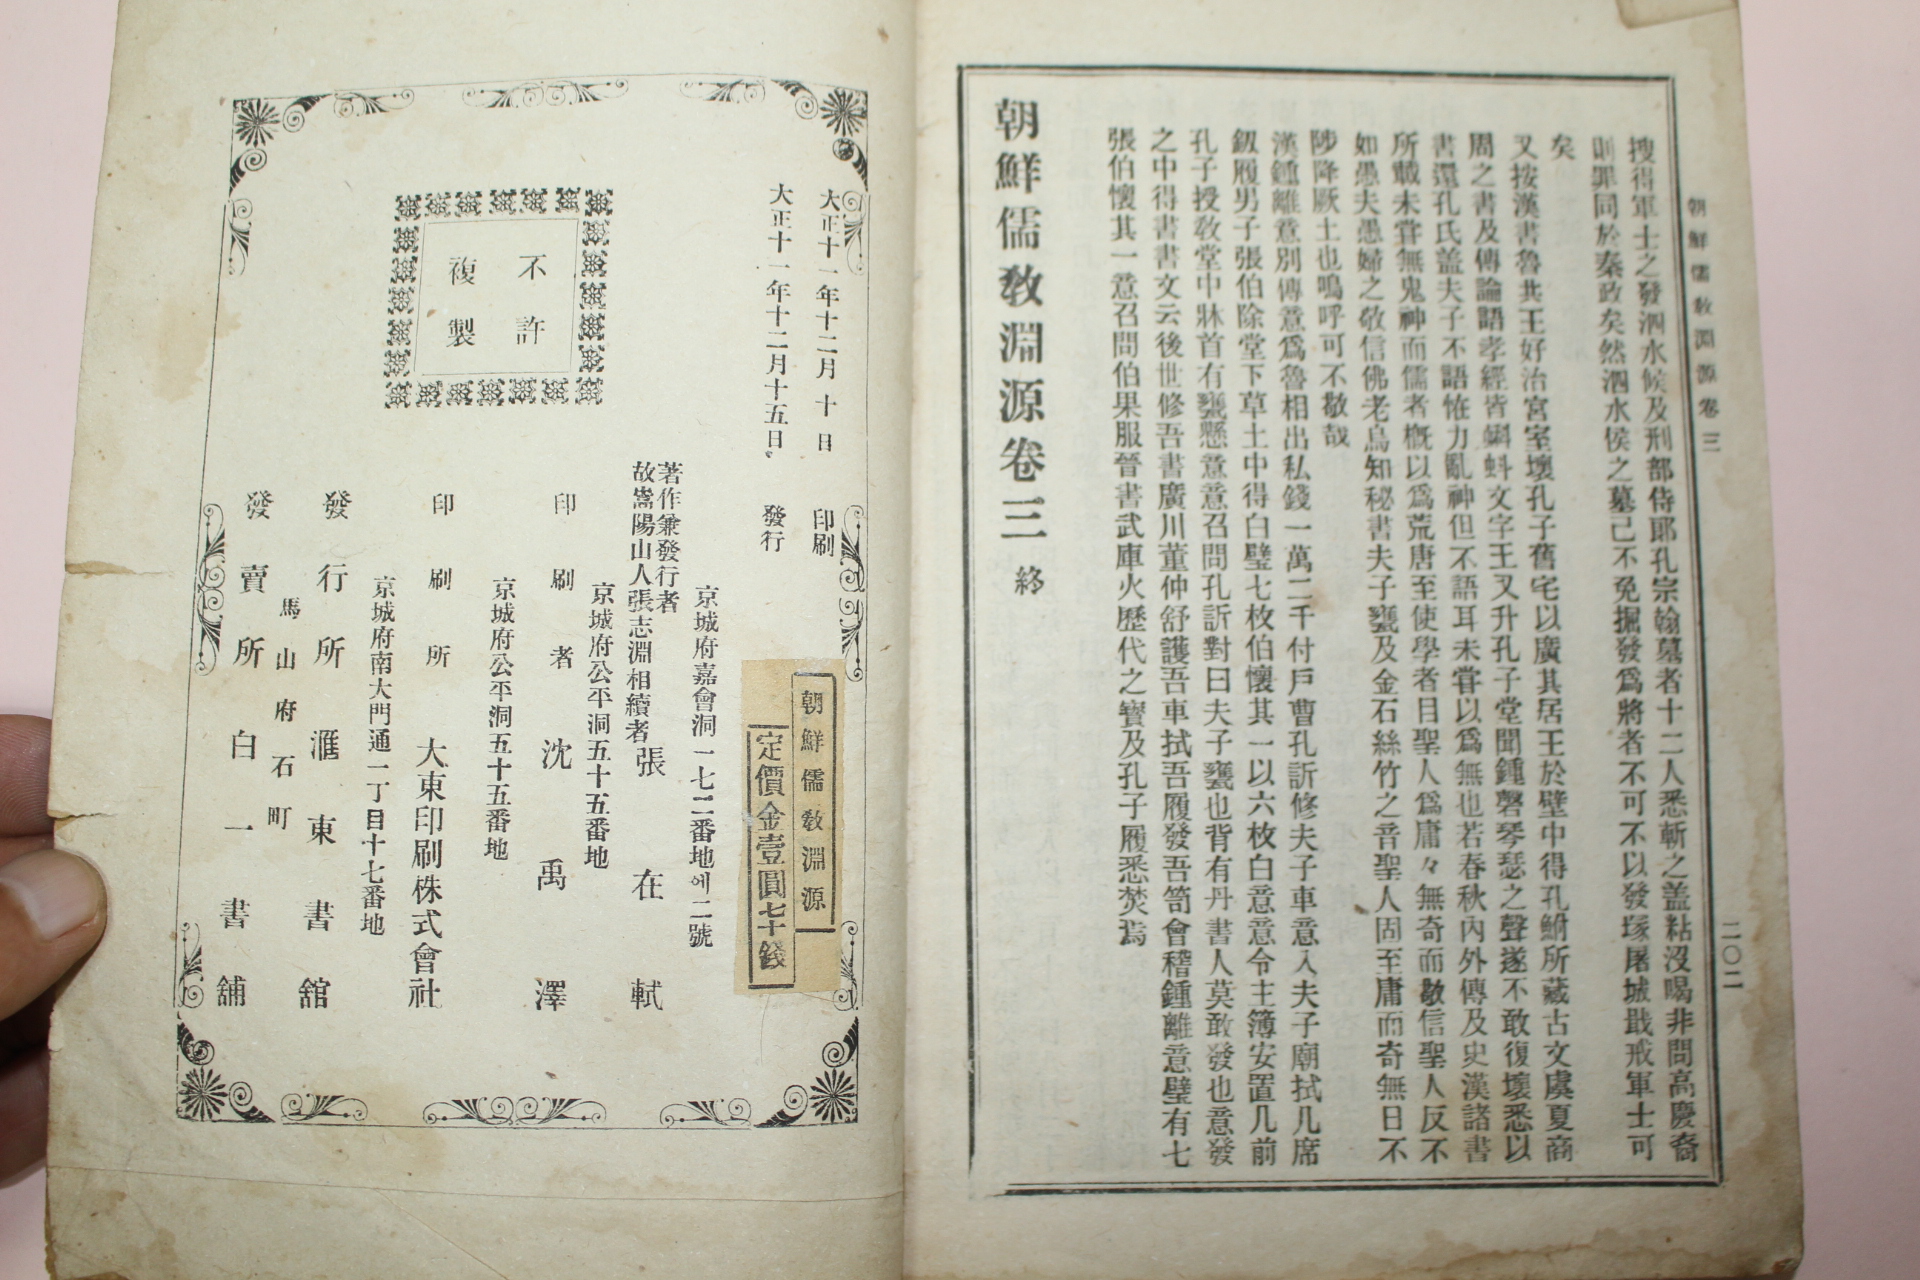 朝鮮儒敎淵源卷三
二〇二
搜得軍士之發泗水候及刑部侍郞孔宗翰墓者十二人悉斬之盖粘沒喝非問高慶裔
則罪同於秦政矣然泗水侯之墓已不免掘發爲將者不可不以發塚屠城戢戒軍士可
矣
又按漢書魯共王好治宮室壞孔子舊宅以廣其居王於壁中得孔鮒所藏古文虞夏商
周之書及傳論語孝經皆蝌蚪文字王又升孔子堂聞鍾磬琴瑟之聲遂不敢復壞悉以
書還孔氏盖夫子不語恠力亂神但不語耳未甞以爲無也若春秋內外傳及史漢諸書
所載未甞無鬼神而儒者槪以爲荒唐至使學者目聖人爲庸々無奇而敬信聖人反不
如愚夫愚婦之敬信佛老烏知秘書夫子甕及金石絲竹之音聖人固至庸而奇無日不
陟降厥土也嗚呼可不敬哉
漢鍾離意別傳意爲魯相出私錢一萬二千付戶曹孔訢修夫子車意入夫子廟拭几席
釼履男子張伯除堂下草土中得白璧七枚伯懷其一以六枚白意意令主簿安置几前
孔子授敎堂中牀首有甕懸意意召問孔訢對曰夫子甕也背有丹書人莫敢發也意發
之中得書書文云後世修吾書廣川董仲舒護吾車拭吾履發吾笥會稽鍾離意璧有七
張伯懷其一意召問伯果服晉書武庫火歷代之寶及孔子履悉焚焉
朝鮮儒敎淵源卷三 終
大正十一年十二月十日 印刷
大正十一年十二月十五日 發行
不許
複製
朝鮮儒敎淵源
定價金壹圓七十錢
京城府嘉會洞一七二番地에二號
著作兼發行者
故嵩陽山人張志淵相續者 張在軾
京城府公平洞五十五番地
印刷者 沈禹澤
京城府公平洞五十五番地
印刷所 大東印刷株式會社
京城府南大門通一丁目十七番地
發行所 滙東書舘
馬山府石町
發賣所 白一書舖